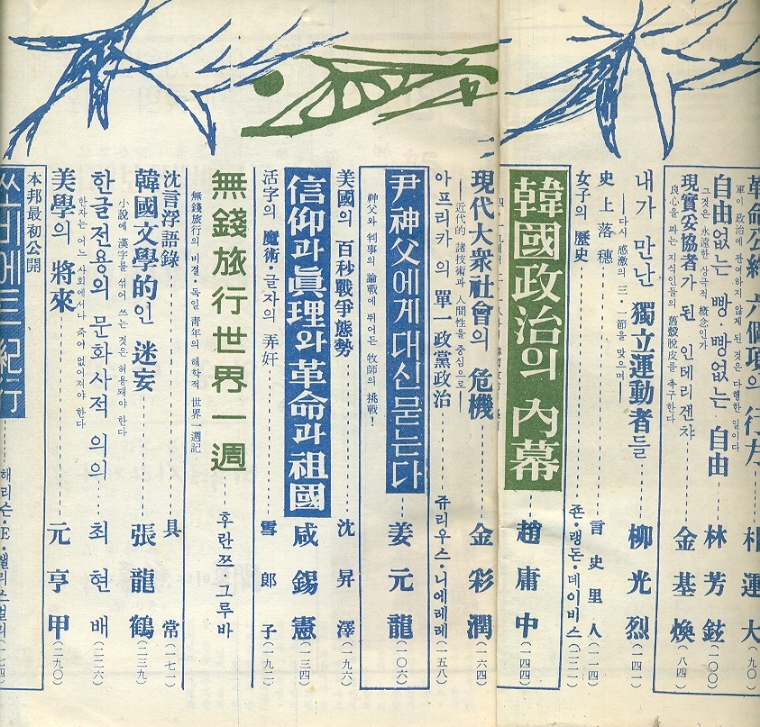 革命公約 六個項의 行方 朴運大 (九○)
軍이 政治에 관여하지 않게 된 것은 다행한 일이다
自由없는 빵·빵없는 自由 林芳鉉 (一○○)
그것은 永遠한 상극적 槪念인가
現實妥協者가 된 인테리겐챠 金基煥 (八四)
良心을 파는 지식인들의 舊殼脫皮를 촉구한다
내가 만난 獨立運動者들 柳光烈 (一四一)
——다시 感激의 三·一節을 맞으며——
史上落穗 言史里人 (二一四)
女子의 歷史 죤·랭돈·데이비스 (二二一)
韓國政治의 內幕 趙庸中 (一四四)
現代大衆社會의 危機 金彩潤 (一六四)
——近代的 諸技術과 人間性을 중심으로——
아프리카의 單一政黨政治 쥬리우스·니에레레 (一五八)
尹神父에게 대신 묻는다 姜元龍 (一○六)
神父와 判事의 論戰에 뛰어든 牧師의 挑戰!
美國의 百秒戰爭態勢 沈昇澤 (一九六)
信仰과 眞理와 革命과 祖國 咸錫憲 (一三四)
活字의 魔術·글자의 弄奸 雪郎子 (一九二)
無錢旅行世界一週 후란쯔·그루바
無錢旅行의 비결·독일 靑年의 해학적 世界一週記
沈言浮語錄 具常 (一七一)
韓國文學的인 迷妄 張龍鶴 (二三九)
小說에 漢字를 섞어 쓰는 것은 허용돼야 한다
한글전용의 문화사적 의의 최현배 (二二六)
한자는 어느 사회에서나 죽어 없어져야 한다
美學의 將來 元亨甲 (二九○)
本邦最初公開
쏘비에트 紀行